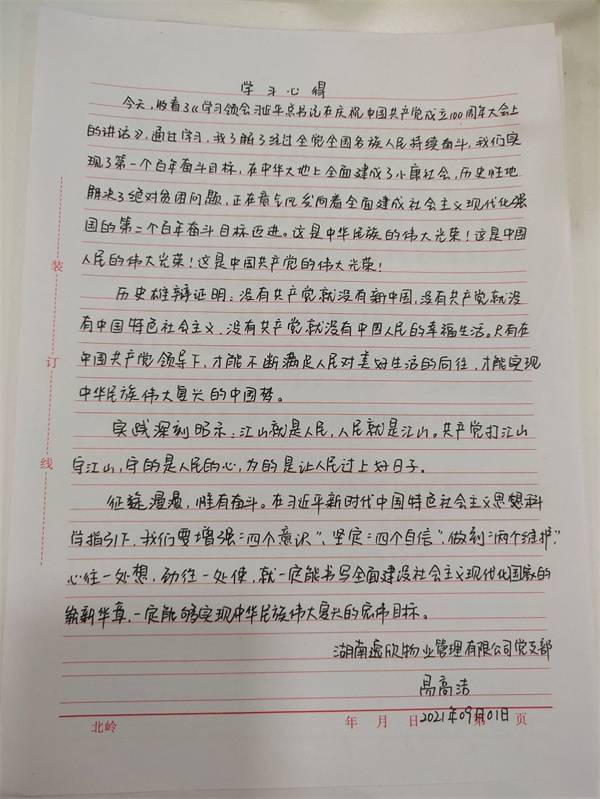 学习心得
今天,收看了《学习领会习近平总书记在庆祝中国共产党成立100周年大会上
的讲话》,通过学习,我了解了经过全党全国各族人民持续奋斗,我们实
现了第一个百年奋斗目标,在中华大地上全面建成了小康社会,历史性地
解决了绝对贫困问题,正在意气风发向着全面建成社会主义现代化强
国的第二个百年奋斗目标迈进。这是中华民族的伟大光荣!这是中国
人民的伟大光荣!这是中国共产党的伟大光荣!
历史雄辩证明:没有共产党就没有新中国,没有共产党就没
有中国特色社会主义,没有共产党就没有中国人民的幸福生活。只有在
中国共产党领导下,才能不断满足人民对美好生活的向往,才能实现
中华民族伟大复兴的中国梦。
实践深刻昭示:江山就是人民,人民就是江山。共产党打江山
守江山,守的是人民的心,为的是让人民过上好日子。
征途漫漫,惟有奋斗。在习近平新时代中国特色社会主义思想科
学指引下,我们要增强“四个意识”、坚定“四个自信”、做到“两个维护”,
心往一处想,劲往一处使,就一定能书写全面建设社会主义现代化国家的
崭新华章,一定能够实现中华民族伟大复兴的宏伟目标。
湖南 物业管理有限公司党支部
高洁
2021年09月01日
装
订
线
北岭 年 月 日 第 页